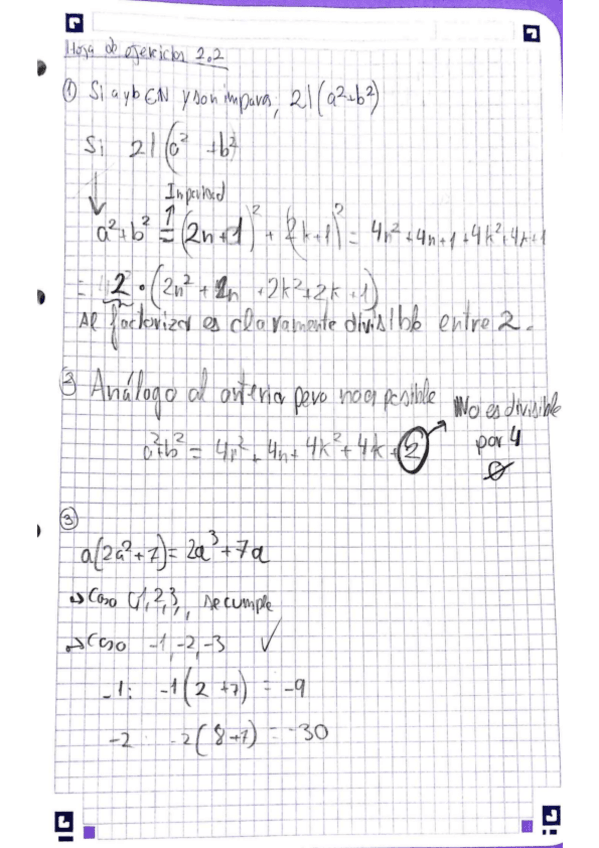 Hoja de ejercicios 2.2
① Si a y b ∈ N y son impares, 2|(a²+b²)
Si 2|(a² + b²)
Imparidad
a²+b² = (2n+1)² + (2k+1)² = 4n²+4n+1+4k²+4k+1
= 2·(2n² + 2n + 2k²+2k+1)
Al factorizar es claramente divisible entre 2.
② Análogo al anterior pero no es posible
No es divisible
por 4
a²+b² = 4n²+4n+4k²+4k+2
③
a(2a²+7) = 2a³+7a
→ Caso 1,2,3, se cumple
→ Caso -1,-2,-3 ✓
-1: -1(2+7) = -9
-2 -2(8+7) = -30